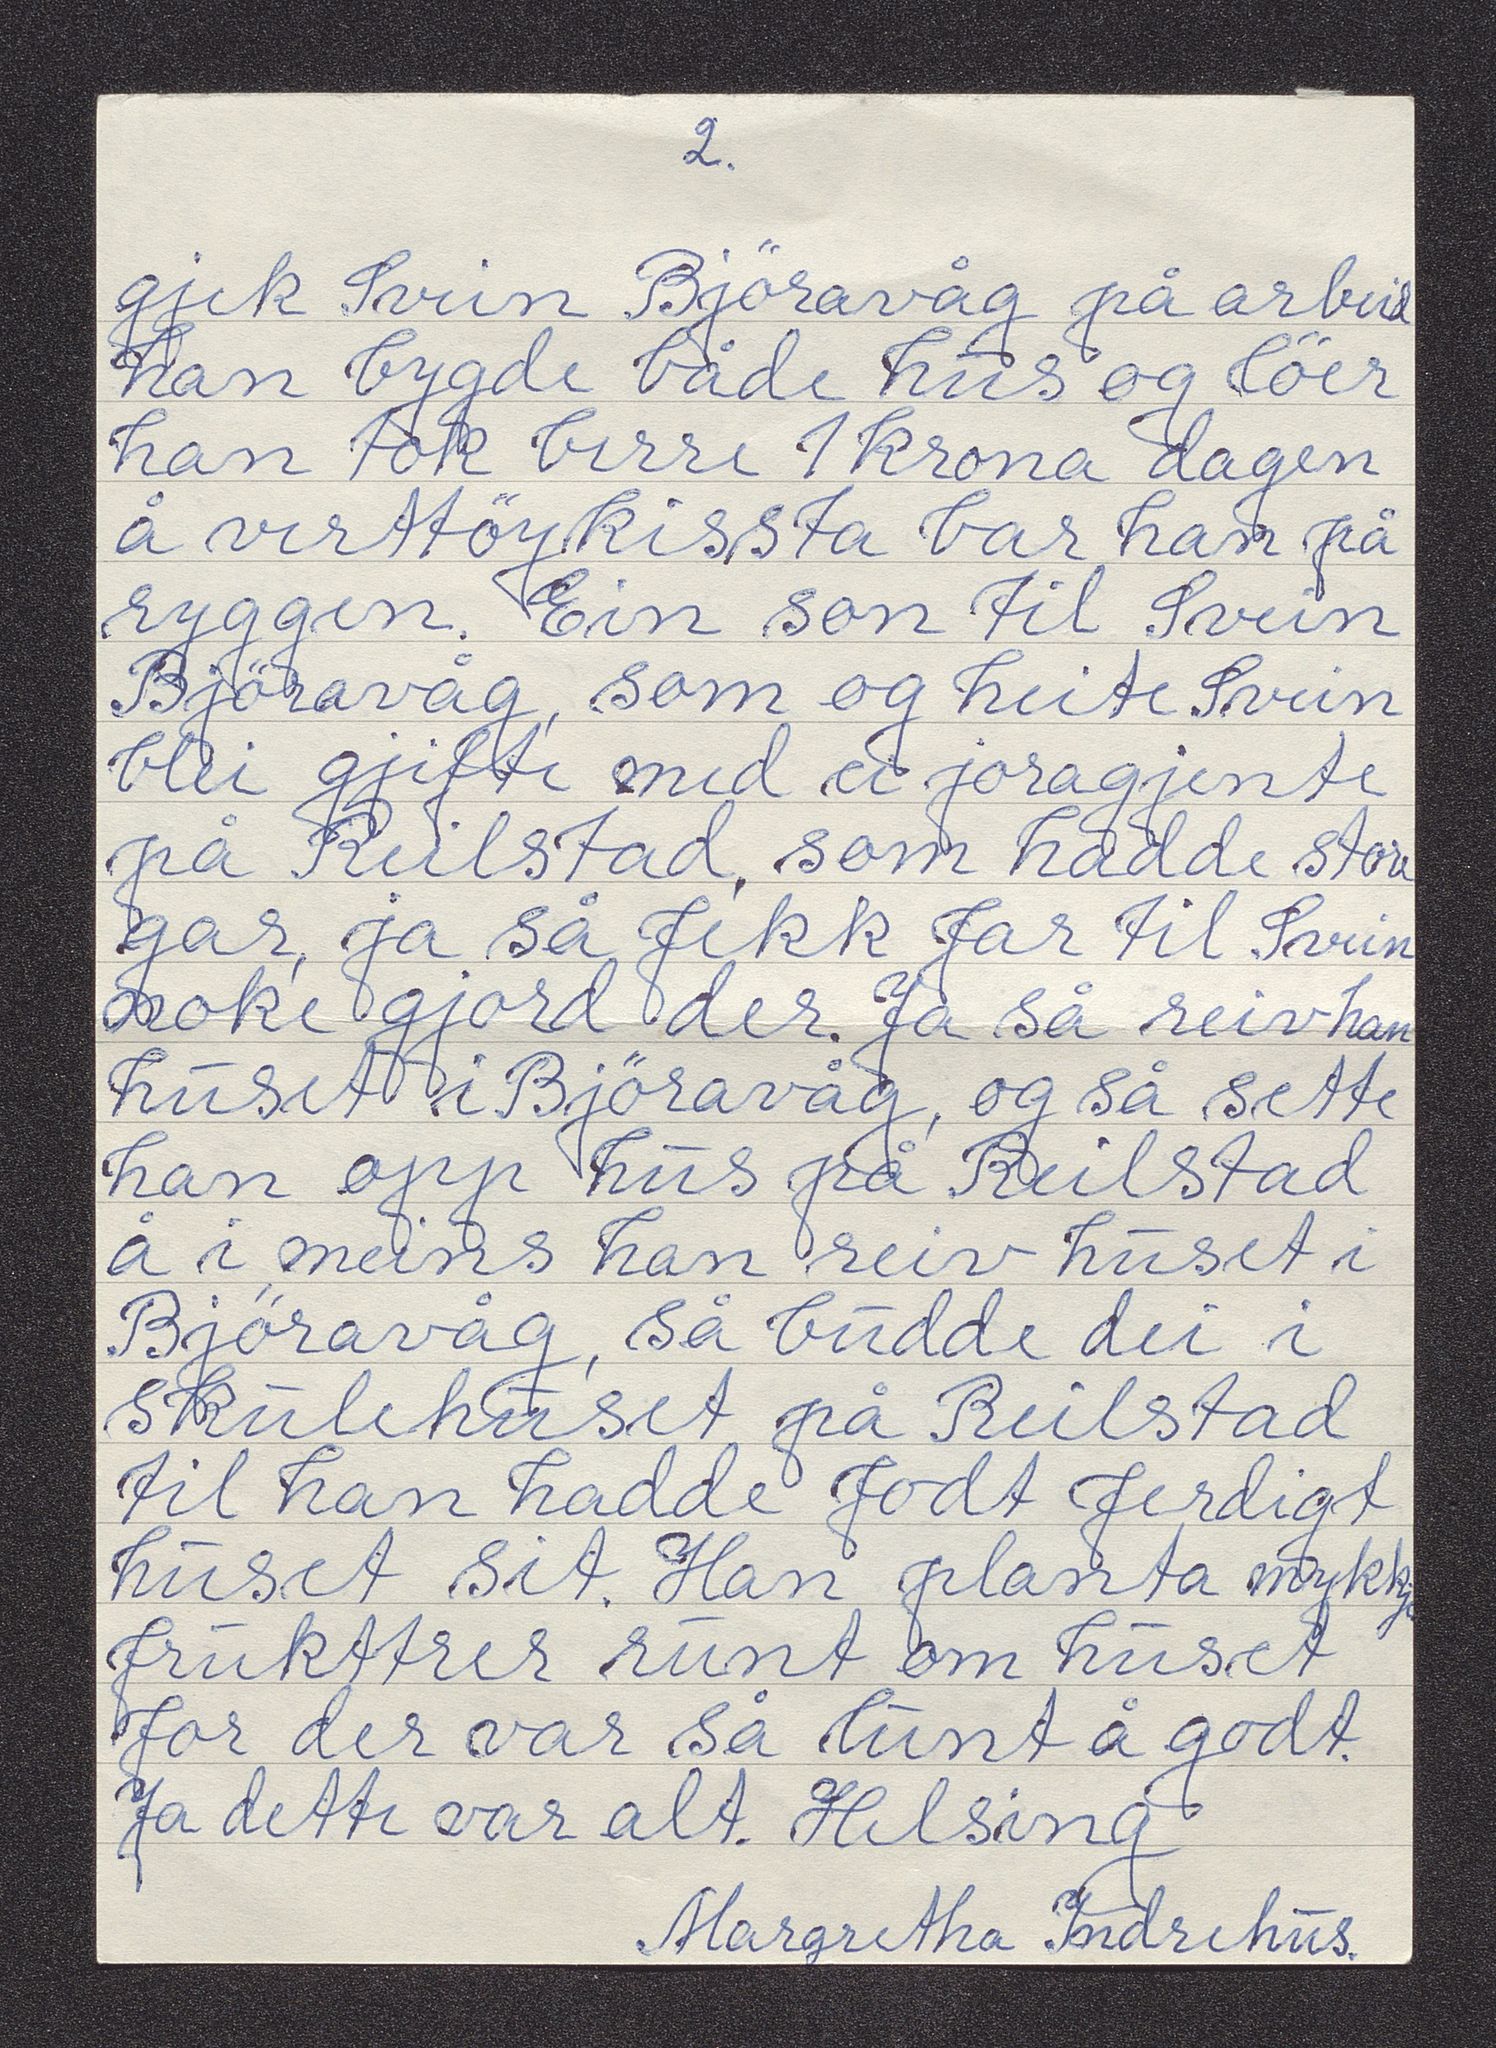 2.
gjek Svein Björavåg på arbeid
han bygde både hus og löer
han tok berre 1 krona dagen
å verttöykissta bar han på
ryggen. Ein son til Svein
Björavåg, som og heite Svein
blei gjifte med ei joragjente
på Reilstad, som hadde stora
gar, ja så fekk far til Svein
noke gjord der. Ja så reiv han
huset i Björavåg, og så sette
han opp hus på Reilstad
å i meins han reiv huset i
Björavåg, så budde dei i
skulehuset på Reilstad
til han hadde fodt ferdigt
huset sit. Han planta mykkje
frukttrer runt om huset
for der var så lunt å godt.
Ja dette var alt. Helsing
Margretha Indrehus.